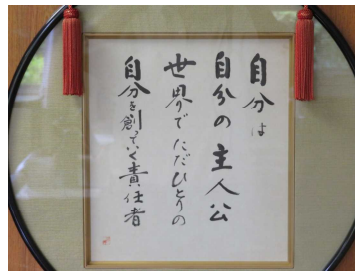 自分は
自分の主人公
世界でただひとりの
自分を創っていく責任者